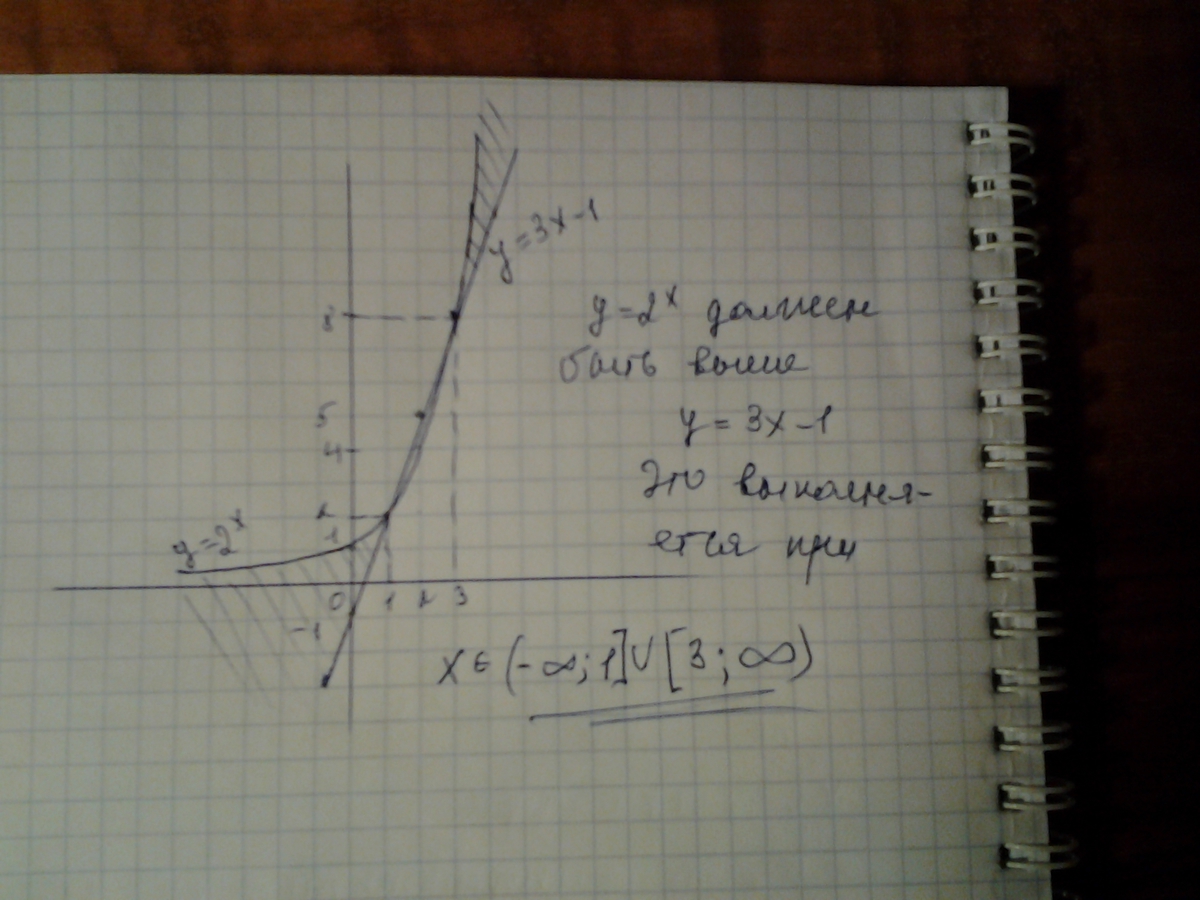 y=3x-1
8
5
4
2
1
y=2ˣ
0 1 2 3
-1
y=2ˣ должен
быть выше
y=3x-1
Это выполня-
ется при
x∈(-∞;1]∪[3;∞)